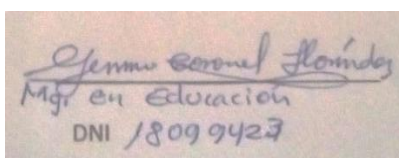 Gemma Coronel Florindez
Mgr en Educación
DNI 18099423